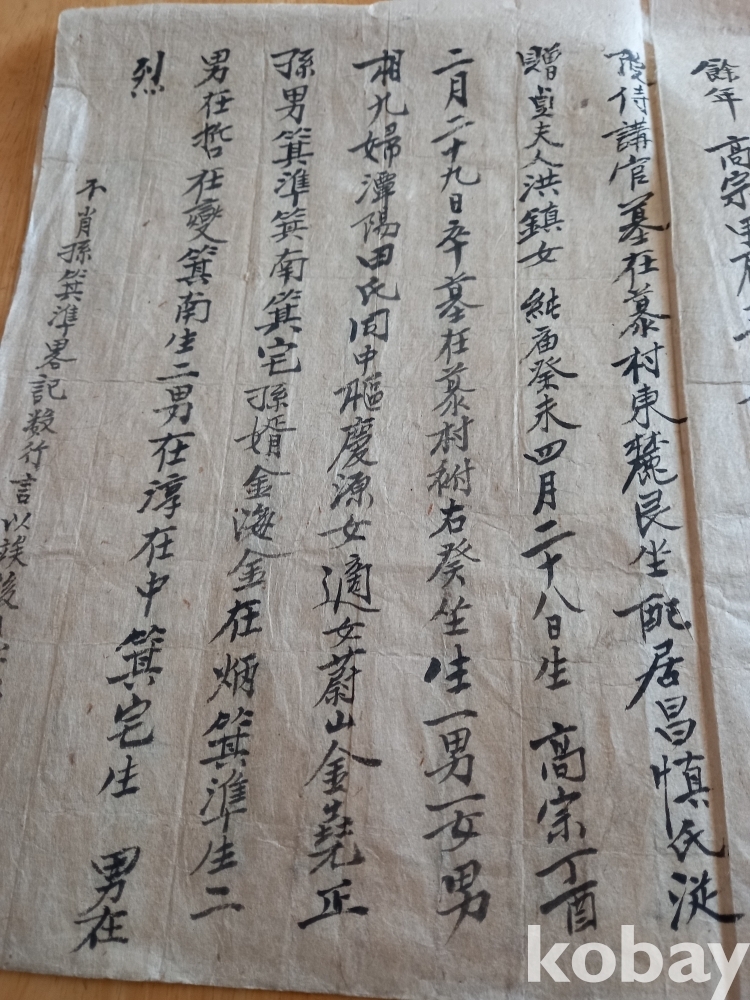 餘年 高宗
授侍講官墓在慕村東麓艮坐 配居昌愼氏從
贈貞夫人洪鎭女 純廟癸未四月二十八日生 高宗丁酉
二月二十九日卒墓在慕村祔右癸坐 生一男一女男
相九婦潭陽田氏同中樞慶源女適女蔚山金堯正
孫男箕準箕南箕宅孫婿金海金在炳箕準生二
男在哲在燮箕南生二男在淳在中 箕宅生 男在
烈
不肖孫箕準畧記数行言以俟後
kobay